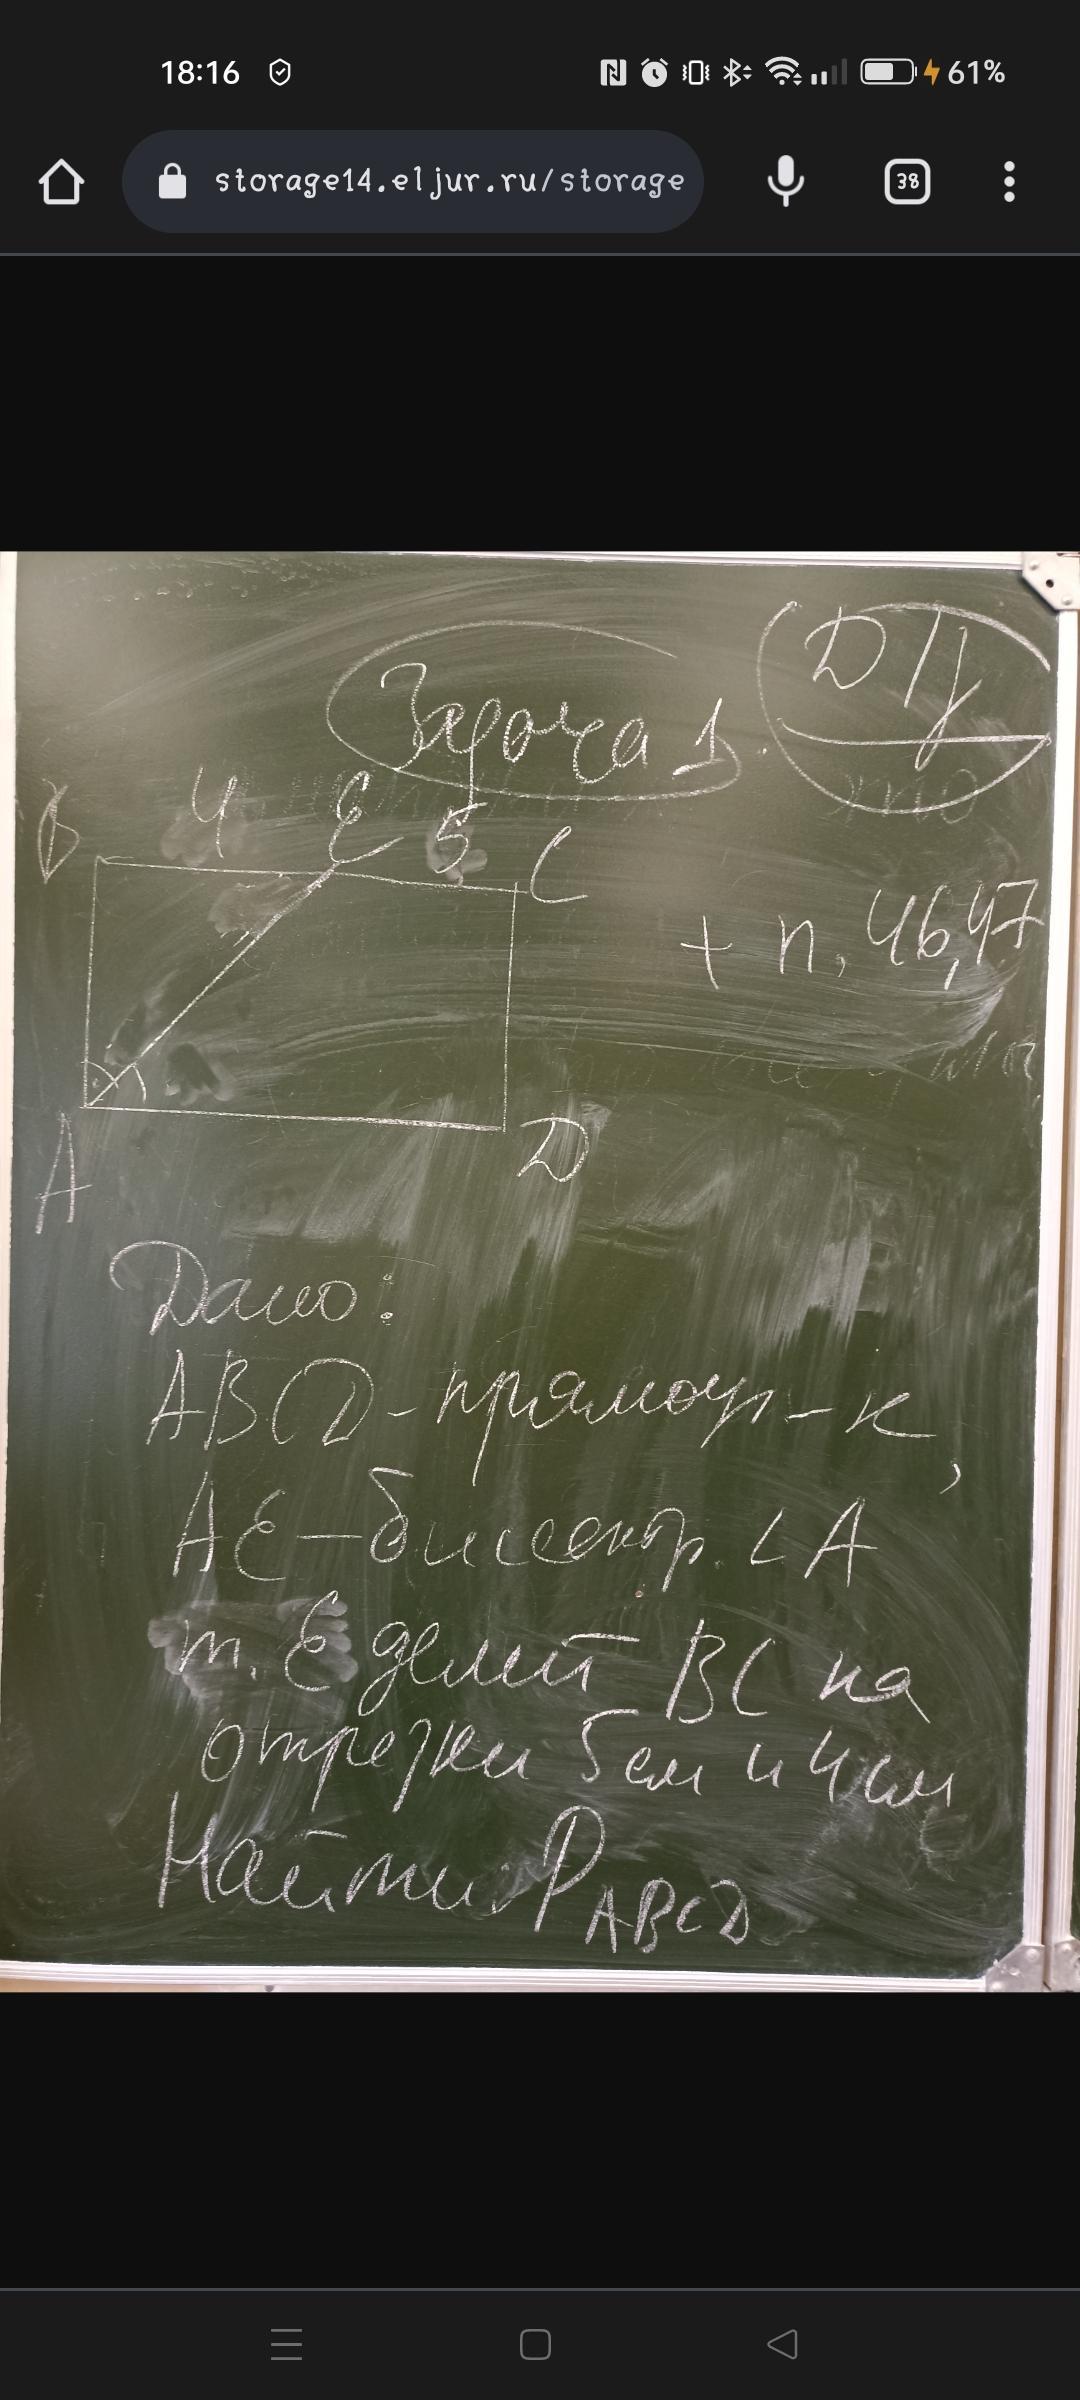 18:16 61%
storage14.eljur.ru/storage 38
Задача 1.
Д/з
B 4 E 5 C
+ п. 46,47
A D
Дано:
ABCD-прямоуг-к,
AE-биссектр. ∠A
т. E делит BC на
отрезки 5см и 4см
Найти: P ABCD